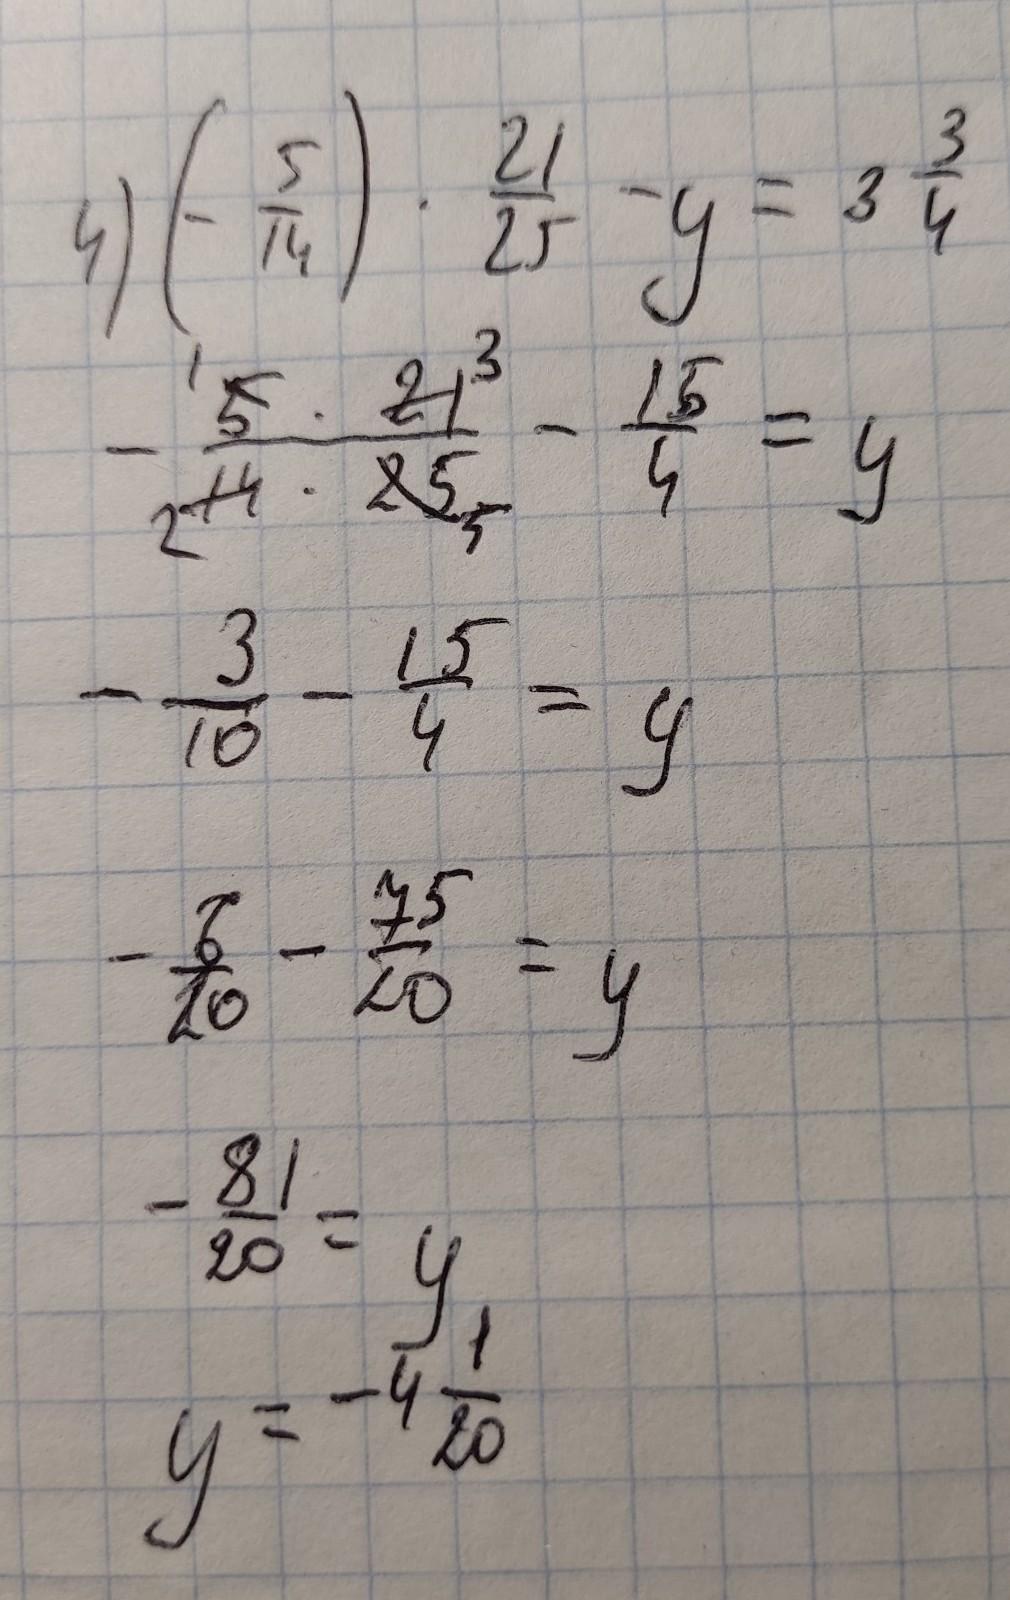 4) (- 5/14) · 21/25 - y = 3 3/4
- 5 1 · 21 3 / 14 2 · 25 5 - 15/4 = y
- 3/10 - 15/4 = y
- 6/20 - 75/20 = y
- 81/20 = y
y = -4 1/20